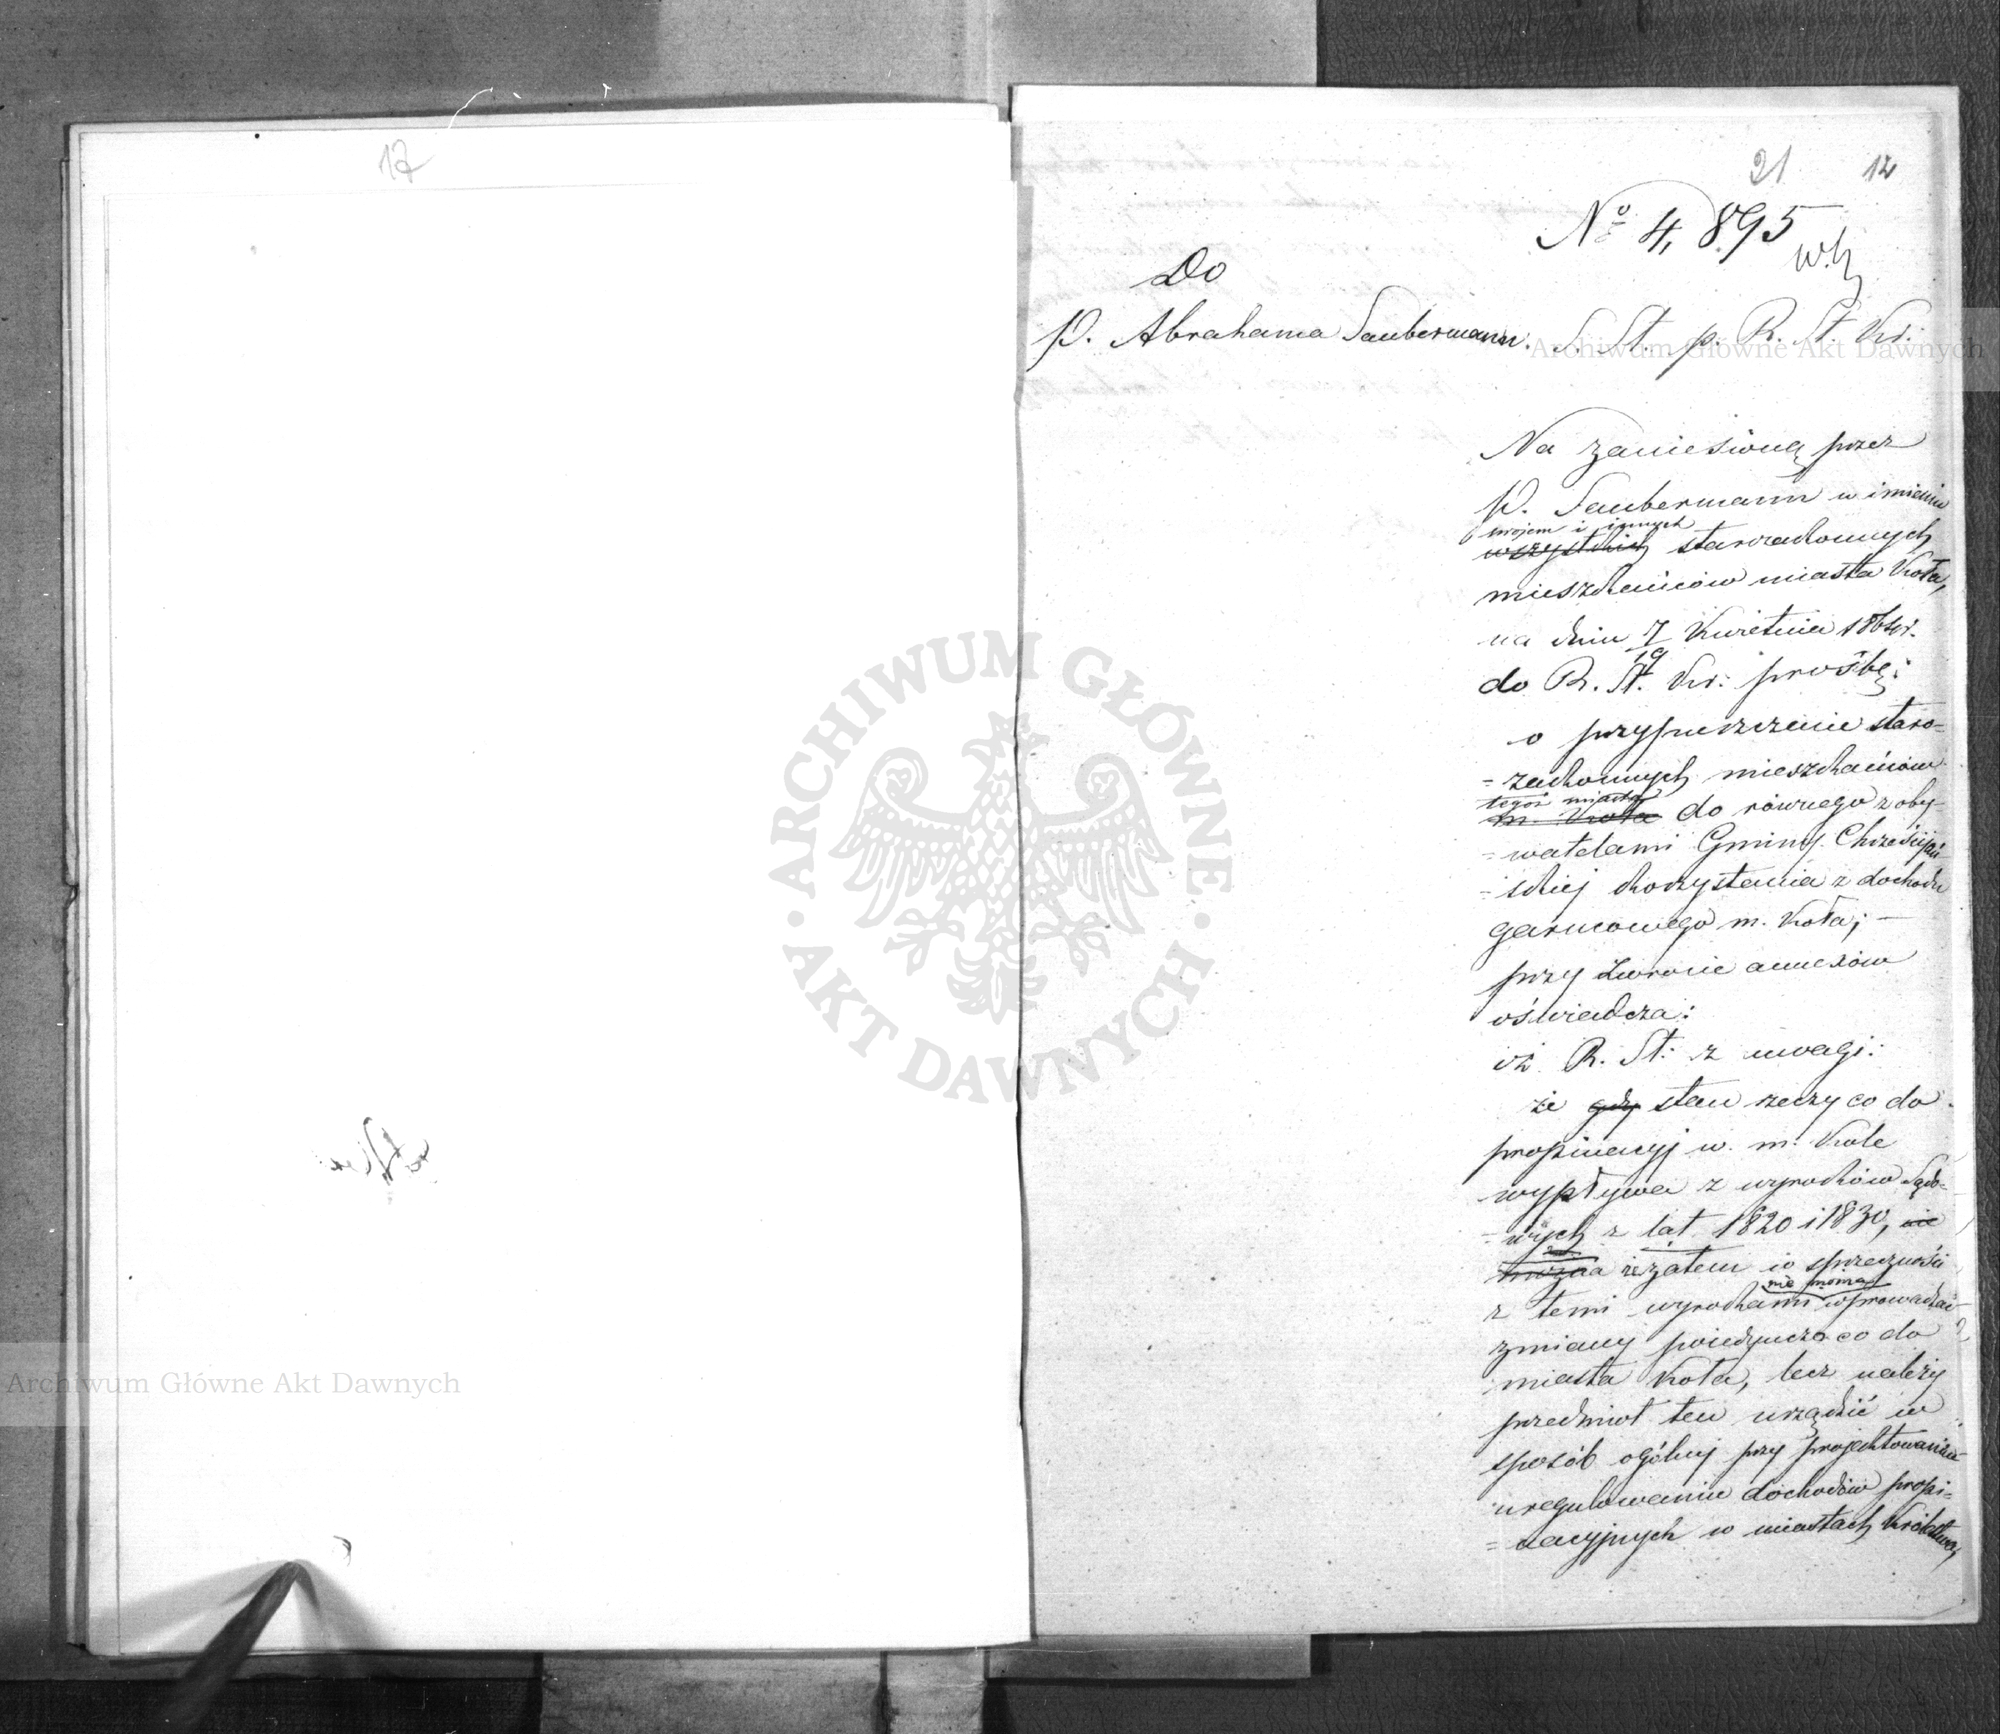 17
21 12
Nº 4,895
Do
P. Abrahama Saubermann. S. St. p. R. St. Kr:
Na zaniesioną przez
P. Saubermann w imieniu
swojem i innych
wszystkich starozakonnych
mieszkańców miasta Koła,
na dniu 7/19 Kwietnia r.
do R. St. Kr: prośbę:
o przypuszczenie staro-
-zakonnych mieszkańców
tegoż miasta
m. Koła do równego z oby-
-watelami Gminy Chrześcijań-
-skiej korzystania z dochodu
garncowego m. Koła; —
przy zwrocie annexów
oświadcza:
iż R. St: z uwagi:
że gdy stan rzeczy co do
propinacyj w. m. Kole
wypływa z wyroków Sądo-
-wych z lat 1820 i 1830, nie
można że zatem w sprzeczności
nie można
z temi wyrokami wprowadzać
zmiany pojedynczo co do
miasta Koła, lecz należy
przedmiot ten urządzić w
sposób ogólny przy projektowaniu
uregulowaniu dochodów propi-
-nacyjnych w miastach Królestwa,
ARCHIWUM GŁÓWNE AKT DAWNYCH
Archiwum Główne Akt Dawnych
Archiwum Główne Akt Dawnych